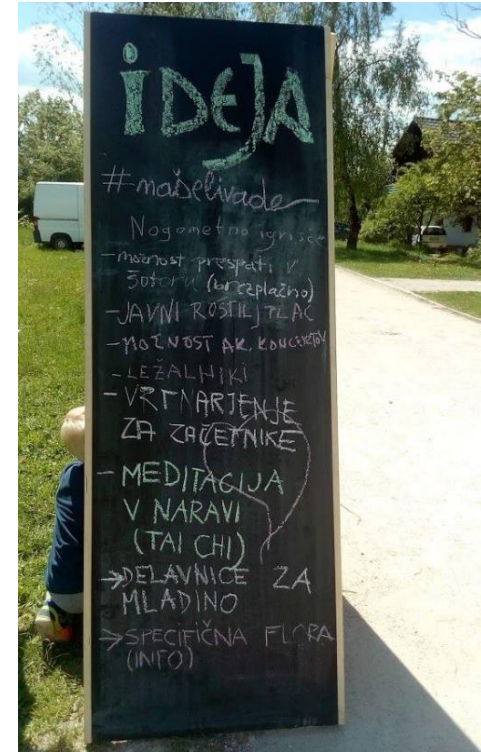 iDEJA
#našelivade
Nogometno igrišče
- možnost prespati v
šotoru (brezplačno)
- JAVNI ROŠTILJ PLAC
- MOŽNOST AK. KONCERTOV
- LEŽALNIKI
- VRTNARJENJE
ZA ZAČETNIKE
- MEDITACIJA
V NARAVI
(TAI CHI)
→ DELAVNICE ZA
MLADINO
→ SPECIFIČNA FLORA
(INFO)